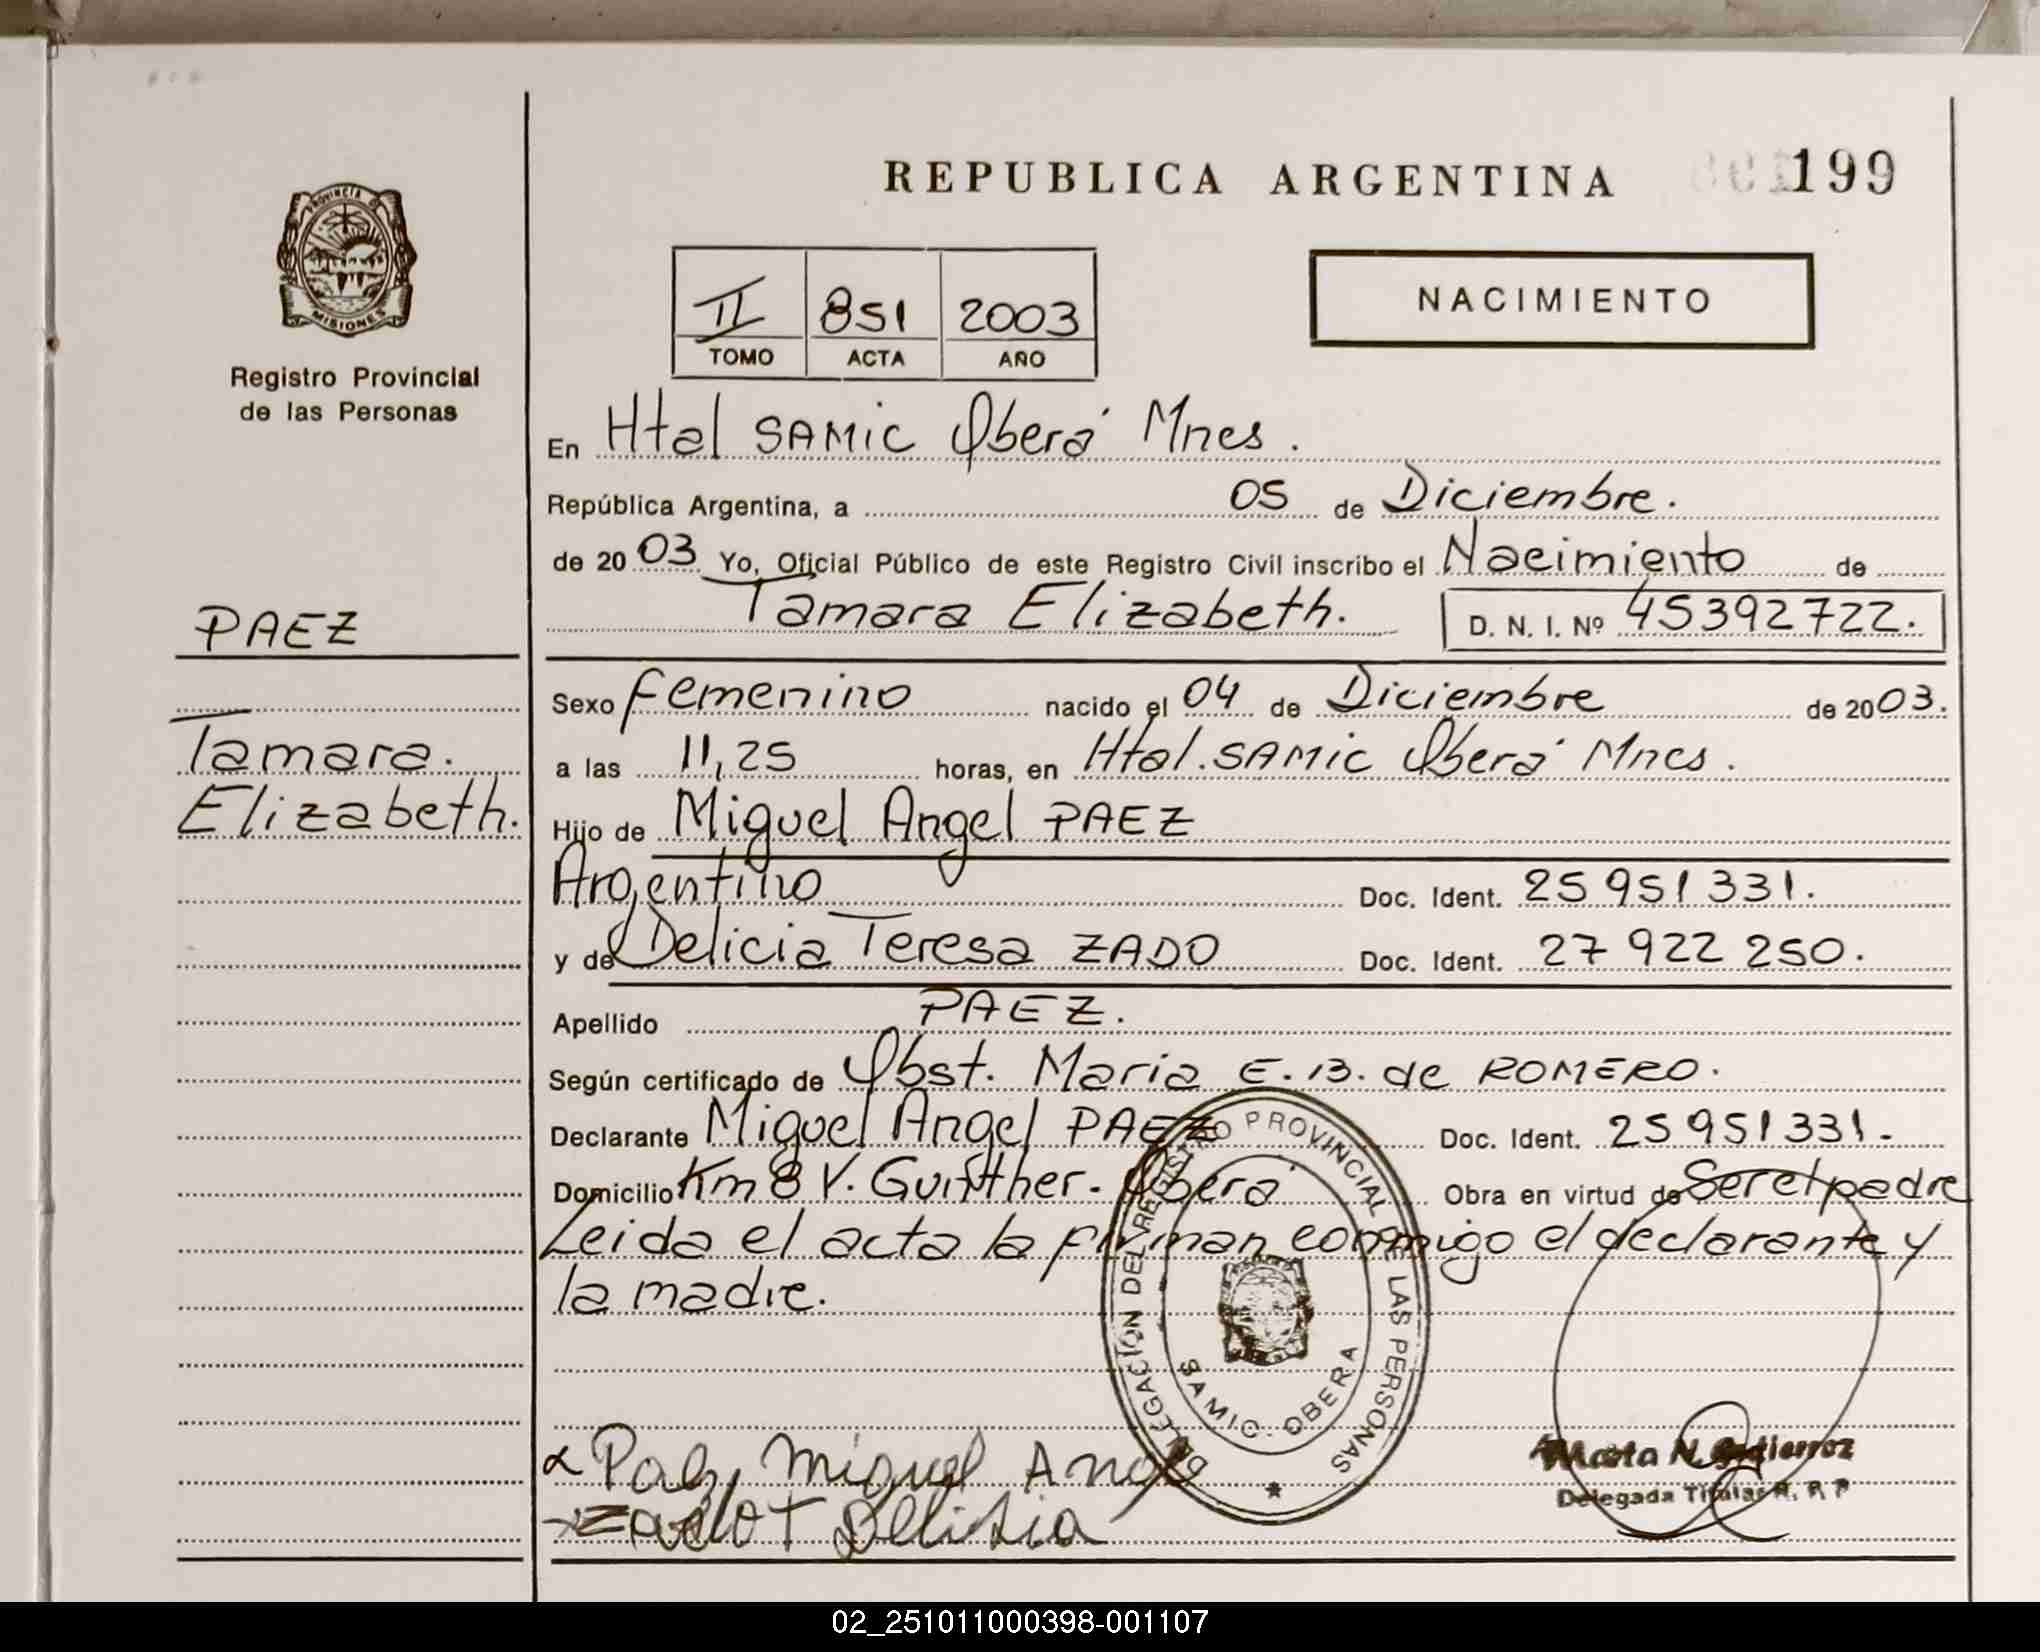 REPUBLICA ARGENTINA
199
PROVINCIA DE
MISIONES
Registro Provincial
de las Personas
II 851 2003
TOMO ACTA AÑO
NACIMIENTO
En Htal SAMIC Oberá Mnes.
República Argentina, a 05 de Diciembre.
de 2003 Yo, Oficial Público de este Registro Civil inscribo el Nacimiento de
Tamara Elizabeth. D. N. I. Nº 45392722.
PAEZ
Tamara.
Elizabeth.
Sexo femenino nacido el 04 de Diciembre de 2003.
a las 11,25 horas, en Htal. SAMIC Oberá Mnes.
Hijo de Miguel Angel PAEZ
Argentino Doc. Ident. 25 951 331.
y de Delicia Teresa ZADO Doc. Ident. 27 922 250.
Apellido PAEZ.
Según certificado de Obst. Maria E. B. de ROMERO.
Declarante Miguel Angel PAEZ Doc. Ident. 25 951 331.
Domicilio Km 8 V. Oberá Obra en virtud de Ser el padre
Leida el acta la firman conmigo el declarante y
la madre.
DELEGACION DEL REGISTRO PROVINCIAL DE LAS PERSONAS
SAMIC. OBERA
Paez Miguel Angel
Marta N. Gutierrez
Delegada Titular R. P. P
02_251011000398-001107